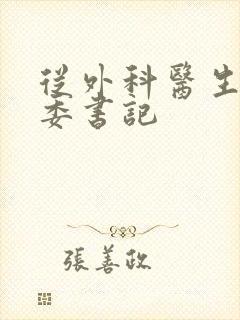 從外科醫生
委書記
張善政